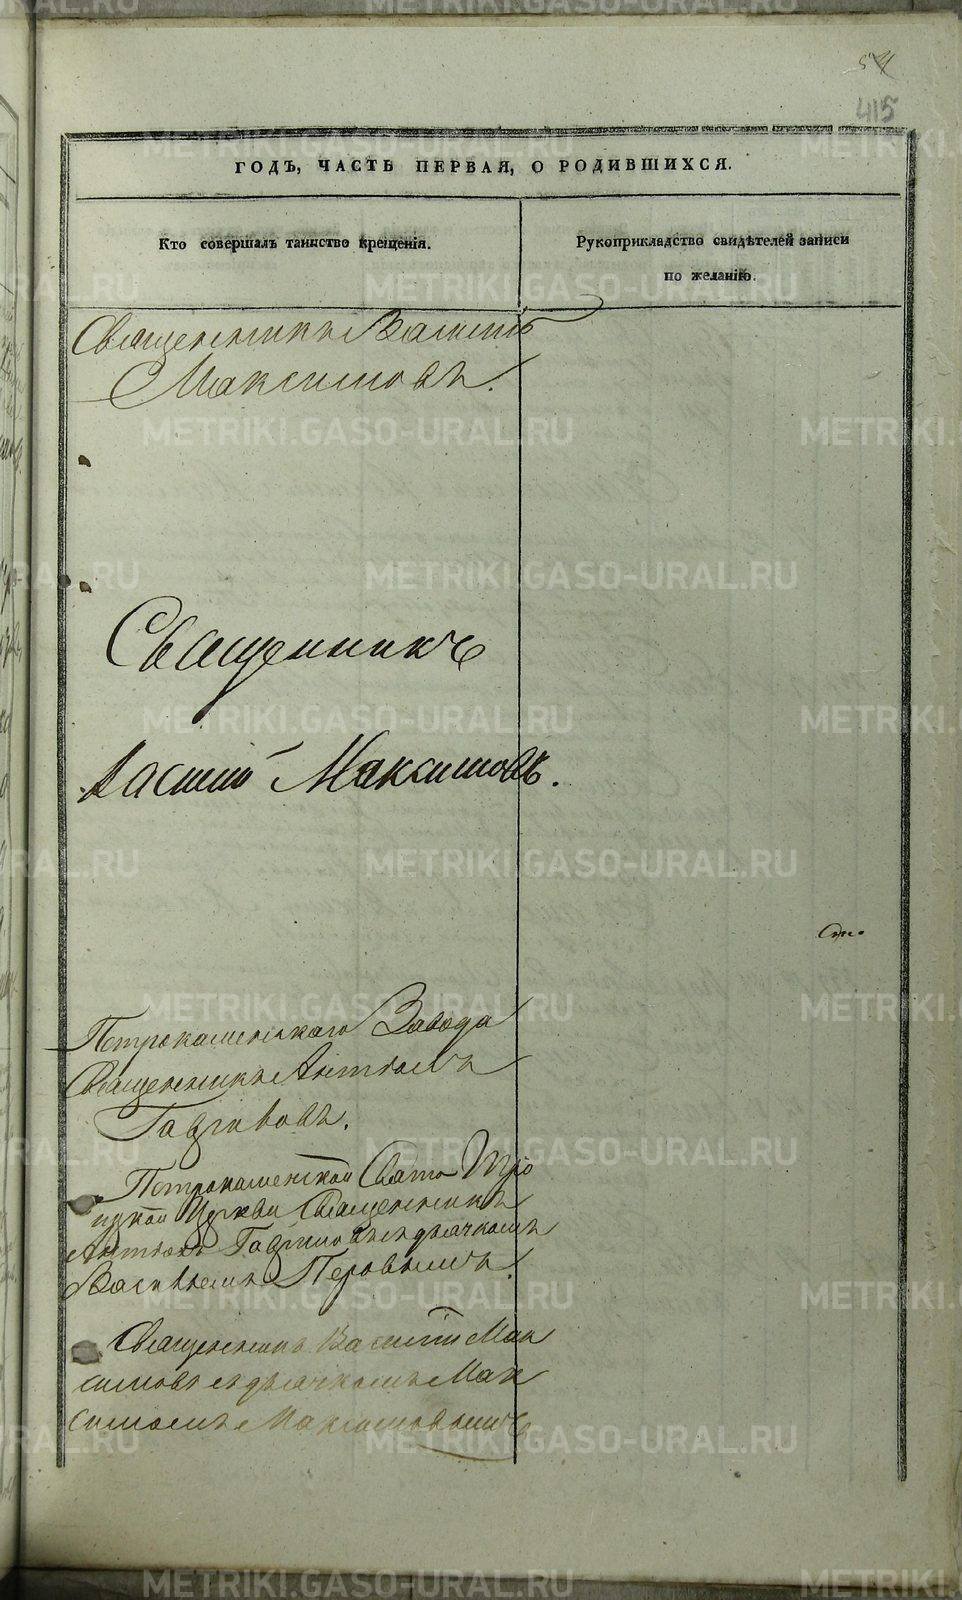 54
415
ГОДЪ, ЧАСТЬ ПЕРВАЯ, О РОДИВШИХСЯ.
Кто совершалъ таинство крещенія.
Рукоприкладство свидѣтелей записи
по желанію.
Священникъ Василій
Максимовъ.
Священникъ
Василій Максимовъ.
Петрокаменскаго Завода
Священникъ Антоній
Гаряевъ.
Петрокаменской Свято Тро
ицкой Церкви Священникъ
съ дьячкомъ
Васильемъ Перовымъ.
Священникъ Василій Мак
симовъ съ дьячкомъ Мак
симомъ Максимовымъ
METRIKI.GASO-URAL.RU